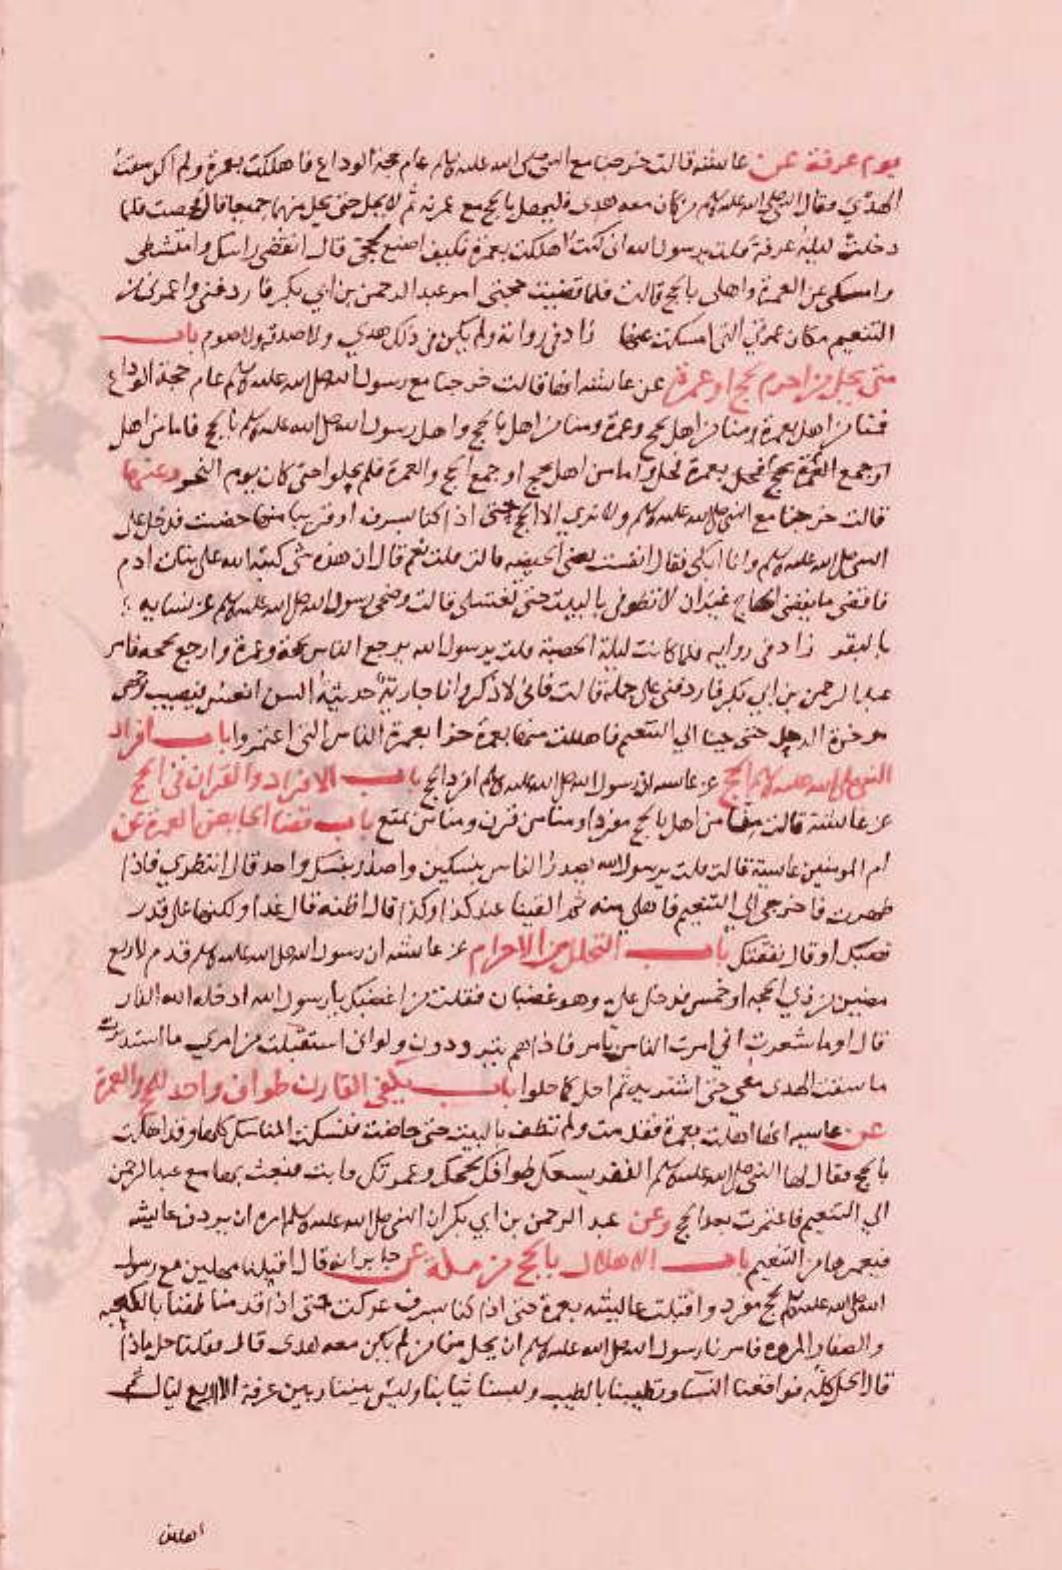 يوم عرفة عن عائشة قالت خرجنا مع النبي صلى الله عليه وسلم عام حجة الوداع فاهللت بعمرة ولم اكن سقت
الهدي فقال النبي صلى الله عليه وسلم من كان معه هدي فليهل بالحج مع عمرته ثم لا يحل حتى يحل منهما جميعا قال فحضت فلما
دخلت ليلة عرفة قلت يرسول الله اني كنت اهللت بعمرة فكيف اصنع بحجتي قال انقضي راسك وامتشطي
وامسكي عن العمرة واهلي بالحج قالت فلما قضيت حجتي امر عبد الرحمن بن ابي بكر فاردفني واعمرني من
التنعيم مكان عمرتي التي امسكت عنها زاد في رواية ولم يكن في ذلك هدي ولا صدقة ولا صوم باب
متى يحل من احرم بحج او عمرة عن عائشة انها قالت خرجنا مع رسول الله صلى الله عليه وسلم عام حجة الوداع
فمنا من اهل بعمرة ومنا من اهل بحج وعمرة ومنا من اهل بالحج واهل رسول الله صلى الله عليه وسلم بالحج فاما من اهل
او جمع العمرة بحج بعمرة فحل واما من اهل بحج او جمع الحج والعمرة فلم يحلوا حتى كان يوم النحر وعنها
قالت خرجنا مع النبي صلى الله عليه وسلم ولا نري الا الحج حتى اذا كنا بسرف او قريبا منها حضت فدخل على
النبي صلى الله عليه وسلم وانا ابكي فقال انفست يعني الحيضة قالت قلت نعم قال ان هذه شي كتبه الله على بنات ادم
فاقضي ما يقضي الحاج غير ان لا تطوفي بالبيت حتى تغتسلي قالت وضحى رسول الله صلى الله عليه وسلم عن نسايه
بالبقر زاد في روايه فلما كانت ليلة الحصبة قلت يرسول الله يرجع الناس بحجة وعمرة وارجع بحجة فامر
عبد الرحمن بن ابي بكر فاردفني على جمله قالت فاني لاذكر وانا جارية حديثة السن انعس فيصيب وجهي
موخرة الرحل حتى جينا الي التنعيم فاهللت منها بعمرة جزا بعمرة الناس التي اعتمروا باب افراد
النبي صلى الله عليه وسلم الحج عن عايشه ان رسول الله صلى الله عليه وسلم افرد الحج باب الافراد والقران في الحج
عن عائشة قالت منا من اهل بالحج مفردا ومنا من قرن ومنا من تمتع باب قضا الحايض العمرة عن
ام المومنين عايشة قالت قلت يرسول الله يصدر الناس بنسكين واصدر بنسك واحد قال انتظري فاذا
طهرت فاخرجي الي التنعيم فاهلي منه ثم القينا عند كذا وكذا قال اظنه قال غدا ولكنها على قدر
نصبك او قال نفقتك باب التحلل من الاحرام عن عائشة ان رسول الله صلى الله عليه وسلم قدم لاربع
مضين من ذي الحجة او خمس فدخل علي وهو غضبان فقلت من اغضبك يا رسول الله ادخله الله النار
قال اوما شعرت اني امرت الناس بامر فاذا هم يترددون ولو اني استقبلت من امري ما استدبرت
ما سقت الهدي معي حتى اشتريه ثم احل كما حلوا باب يكفي القارن طواف واحد للحج والعمرة
عن عايشه انها اهلت بعمرة فقدمت ولم تطف بالبيت حتى حاضت فنسكت المناسك كلها وقد اهلت
بالحج فقال لها النبي صلى الله عليه وسلم النفر يسعك طوافك لحجك وعمرتك فابت فبعث بها مع عبد الرحمن
الي التنعيم فاعتمرت بعد الحج وعن عبد الرحمن بن ابي بكر ان النبي صلى الله عليه وسلم امره ان يردف عايشه
فيعمرها من التنعيم باب الاهلال بالحج من مكة عن جابر انه قال اقبلنا مهلين مع رسول
الله صلى الله عليه وسلم بحج مفرد واقبلت عايشه بعمرة حتى اذا كنا بسرف عركت حتى اذا قدمنا طفنا بالكعبه
والصفا والمروه فامرنا رسول الله صلى الله عليه وسلم ان يحل منا من لم يكن معه هدي قال فقلنا حل ماذا
قال الحل كله فواقعنا النسا وتطيبنا بالطيب ولبسنا ثيابنا وليس بيننا وبين عرفة الا اربع ليال ثم
اهللنا